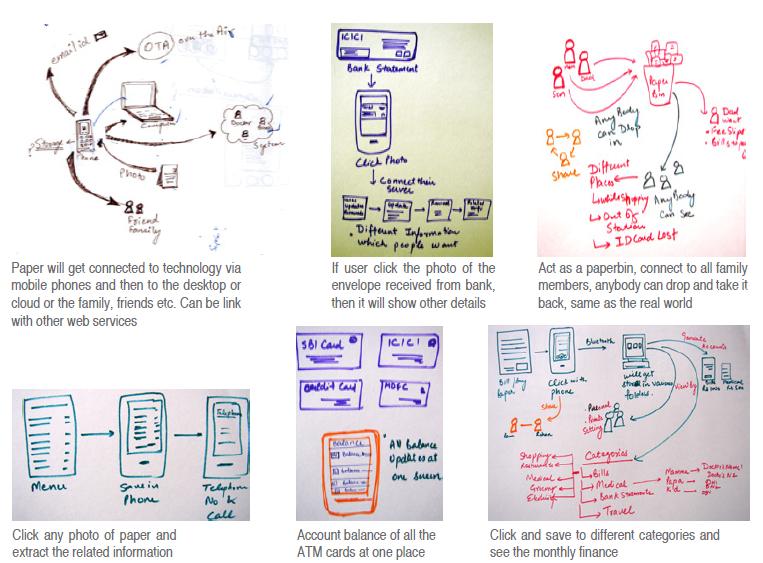 email id
OTA
over the Air
Doctor
System
Storage
Phone
Photo
Friend
Family
Paper will get connected to technology via
mobile phones and then to the desktop or
cloud or the family, friends etc. Can be link
with other web services
ICICI
Bank Statement
Click Photo
Connect their
Server
Different Information
which people want
If user click the photo of the
envelope received from bank,
then it will show other details
Mom
Dad
Son
Paper
Bin
Any Body
Can Drop
in
Share
Dad
want
Fee Slips
Bills
Different
Places
While Shopping
Out of
Station
ID Card Lost
Any Body
Can See
Act as a paperbin, connect to all family
members, anybody can drop and take it
back, same as the real world
Menu
Save in
Phone
Telephone
Telephone
No &
Call
Click any photo of paper and
extract the related information
SBI Card
ICICI
Credit Card
HDFC
Balance
Balance
balance
balance
All balance
Updates at
one screen
Account balance of all the
ATM cards at one place
Bill/Any
Paper
Click with
phone
Bluetooth
will get
stored in various
folders
Generate
Accounts
View by
Share
Personal
Setting
Categories
Shopping
Medical
Grocery
Bills
Medical
Bank Statements
Travel
Mamma
Papa
Kid
Click and save to different categories and
see the monthly finance